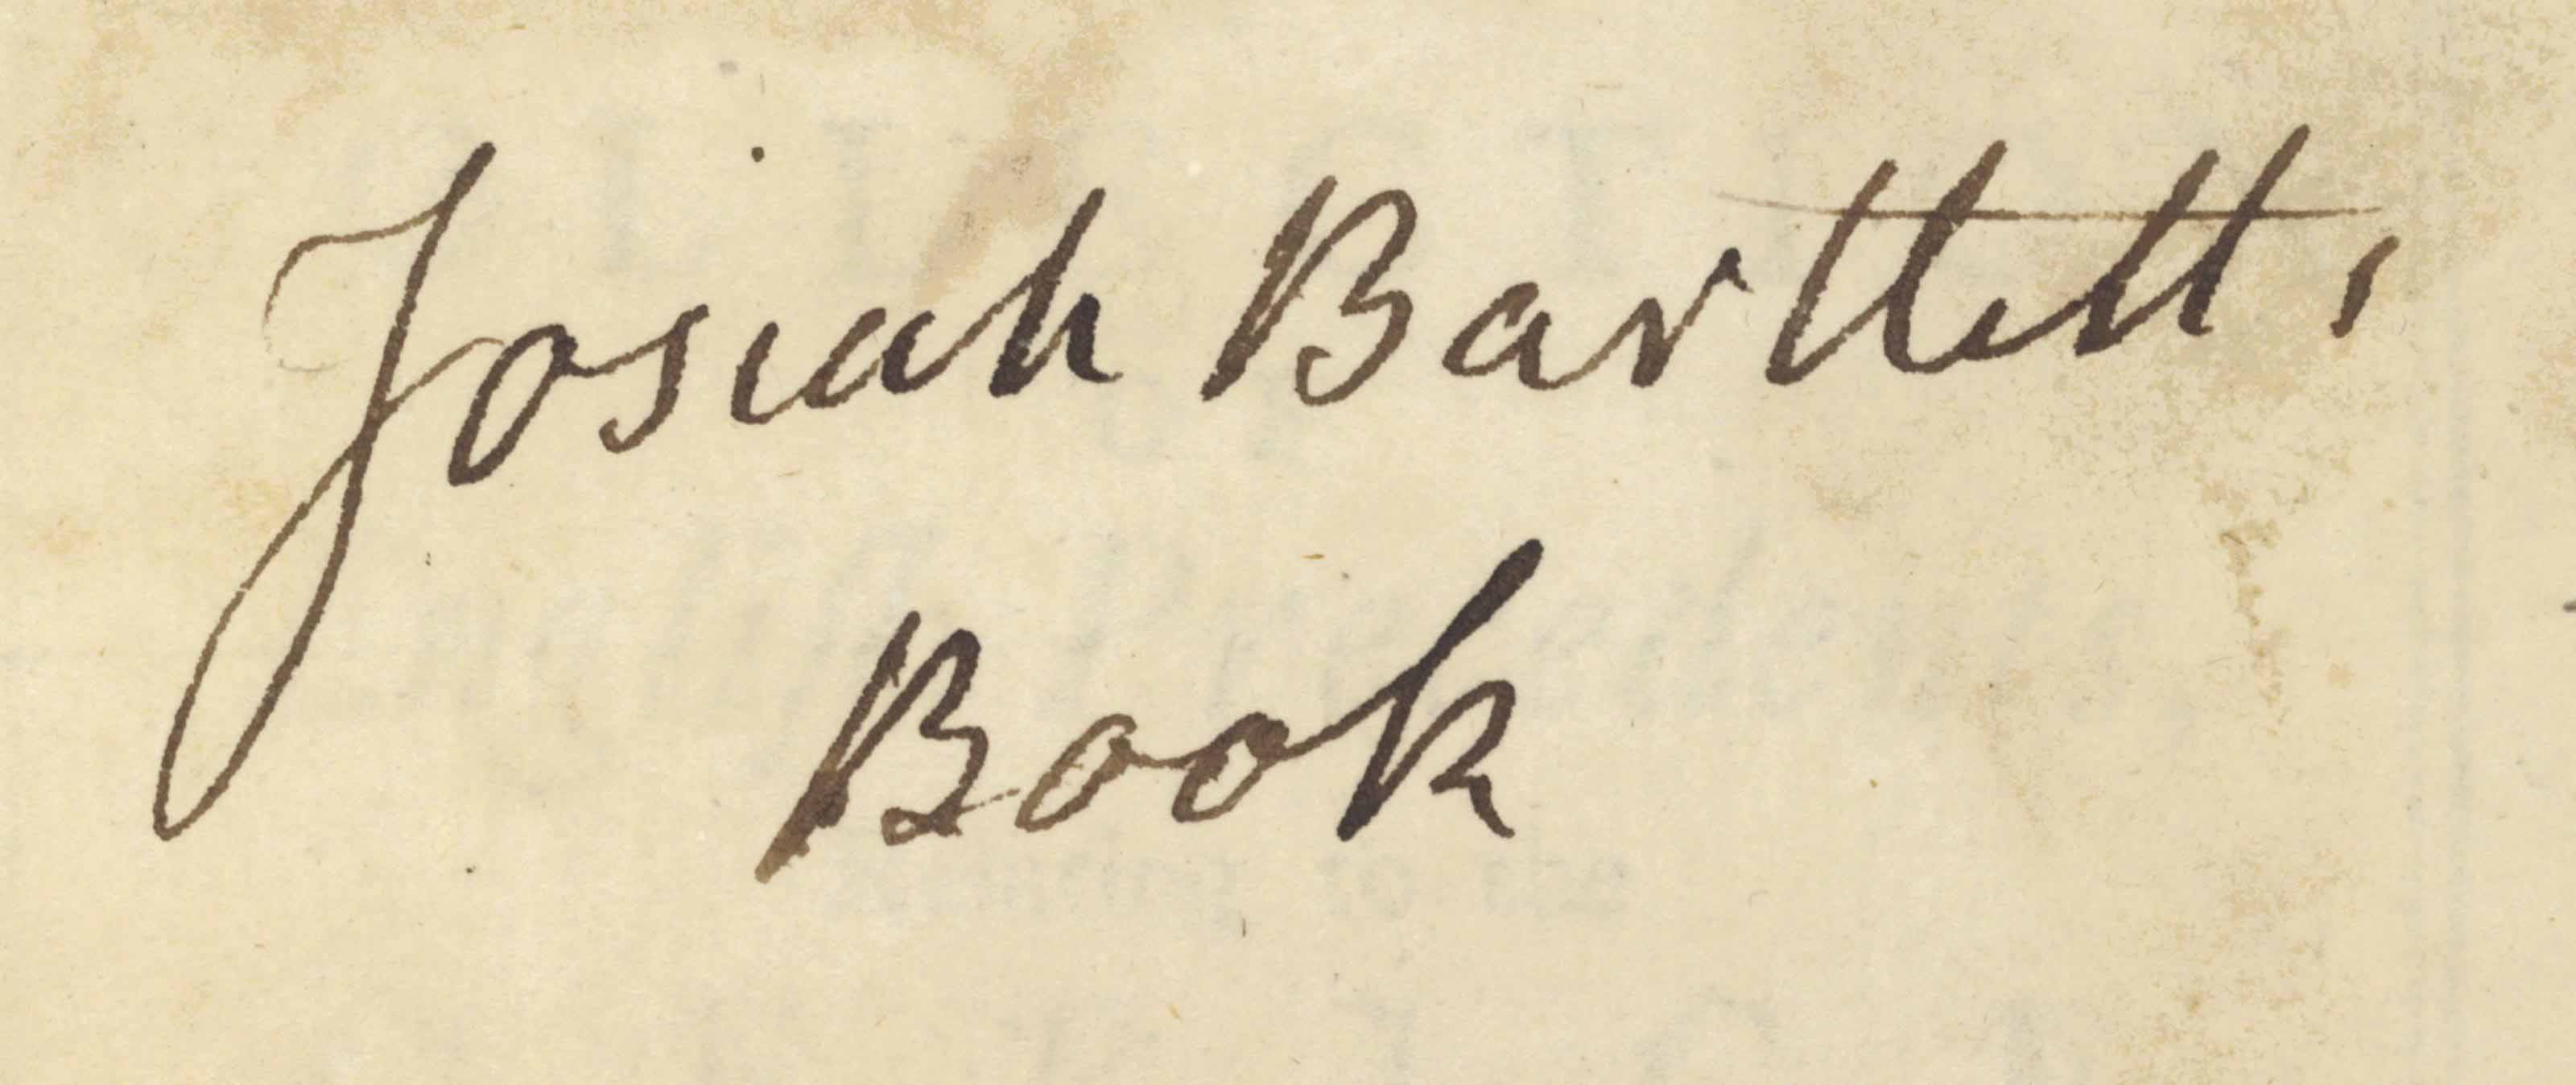 Josiah Bartlett,
Book